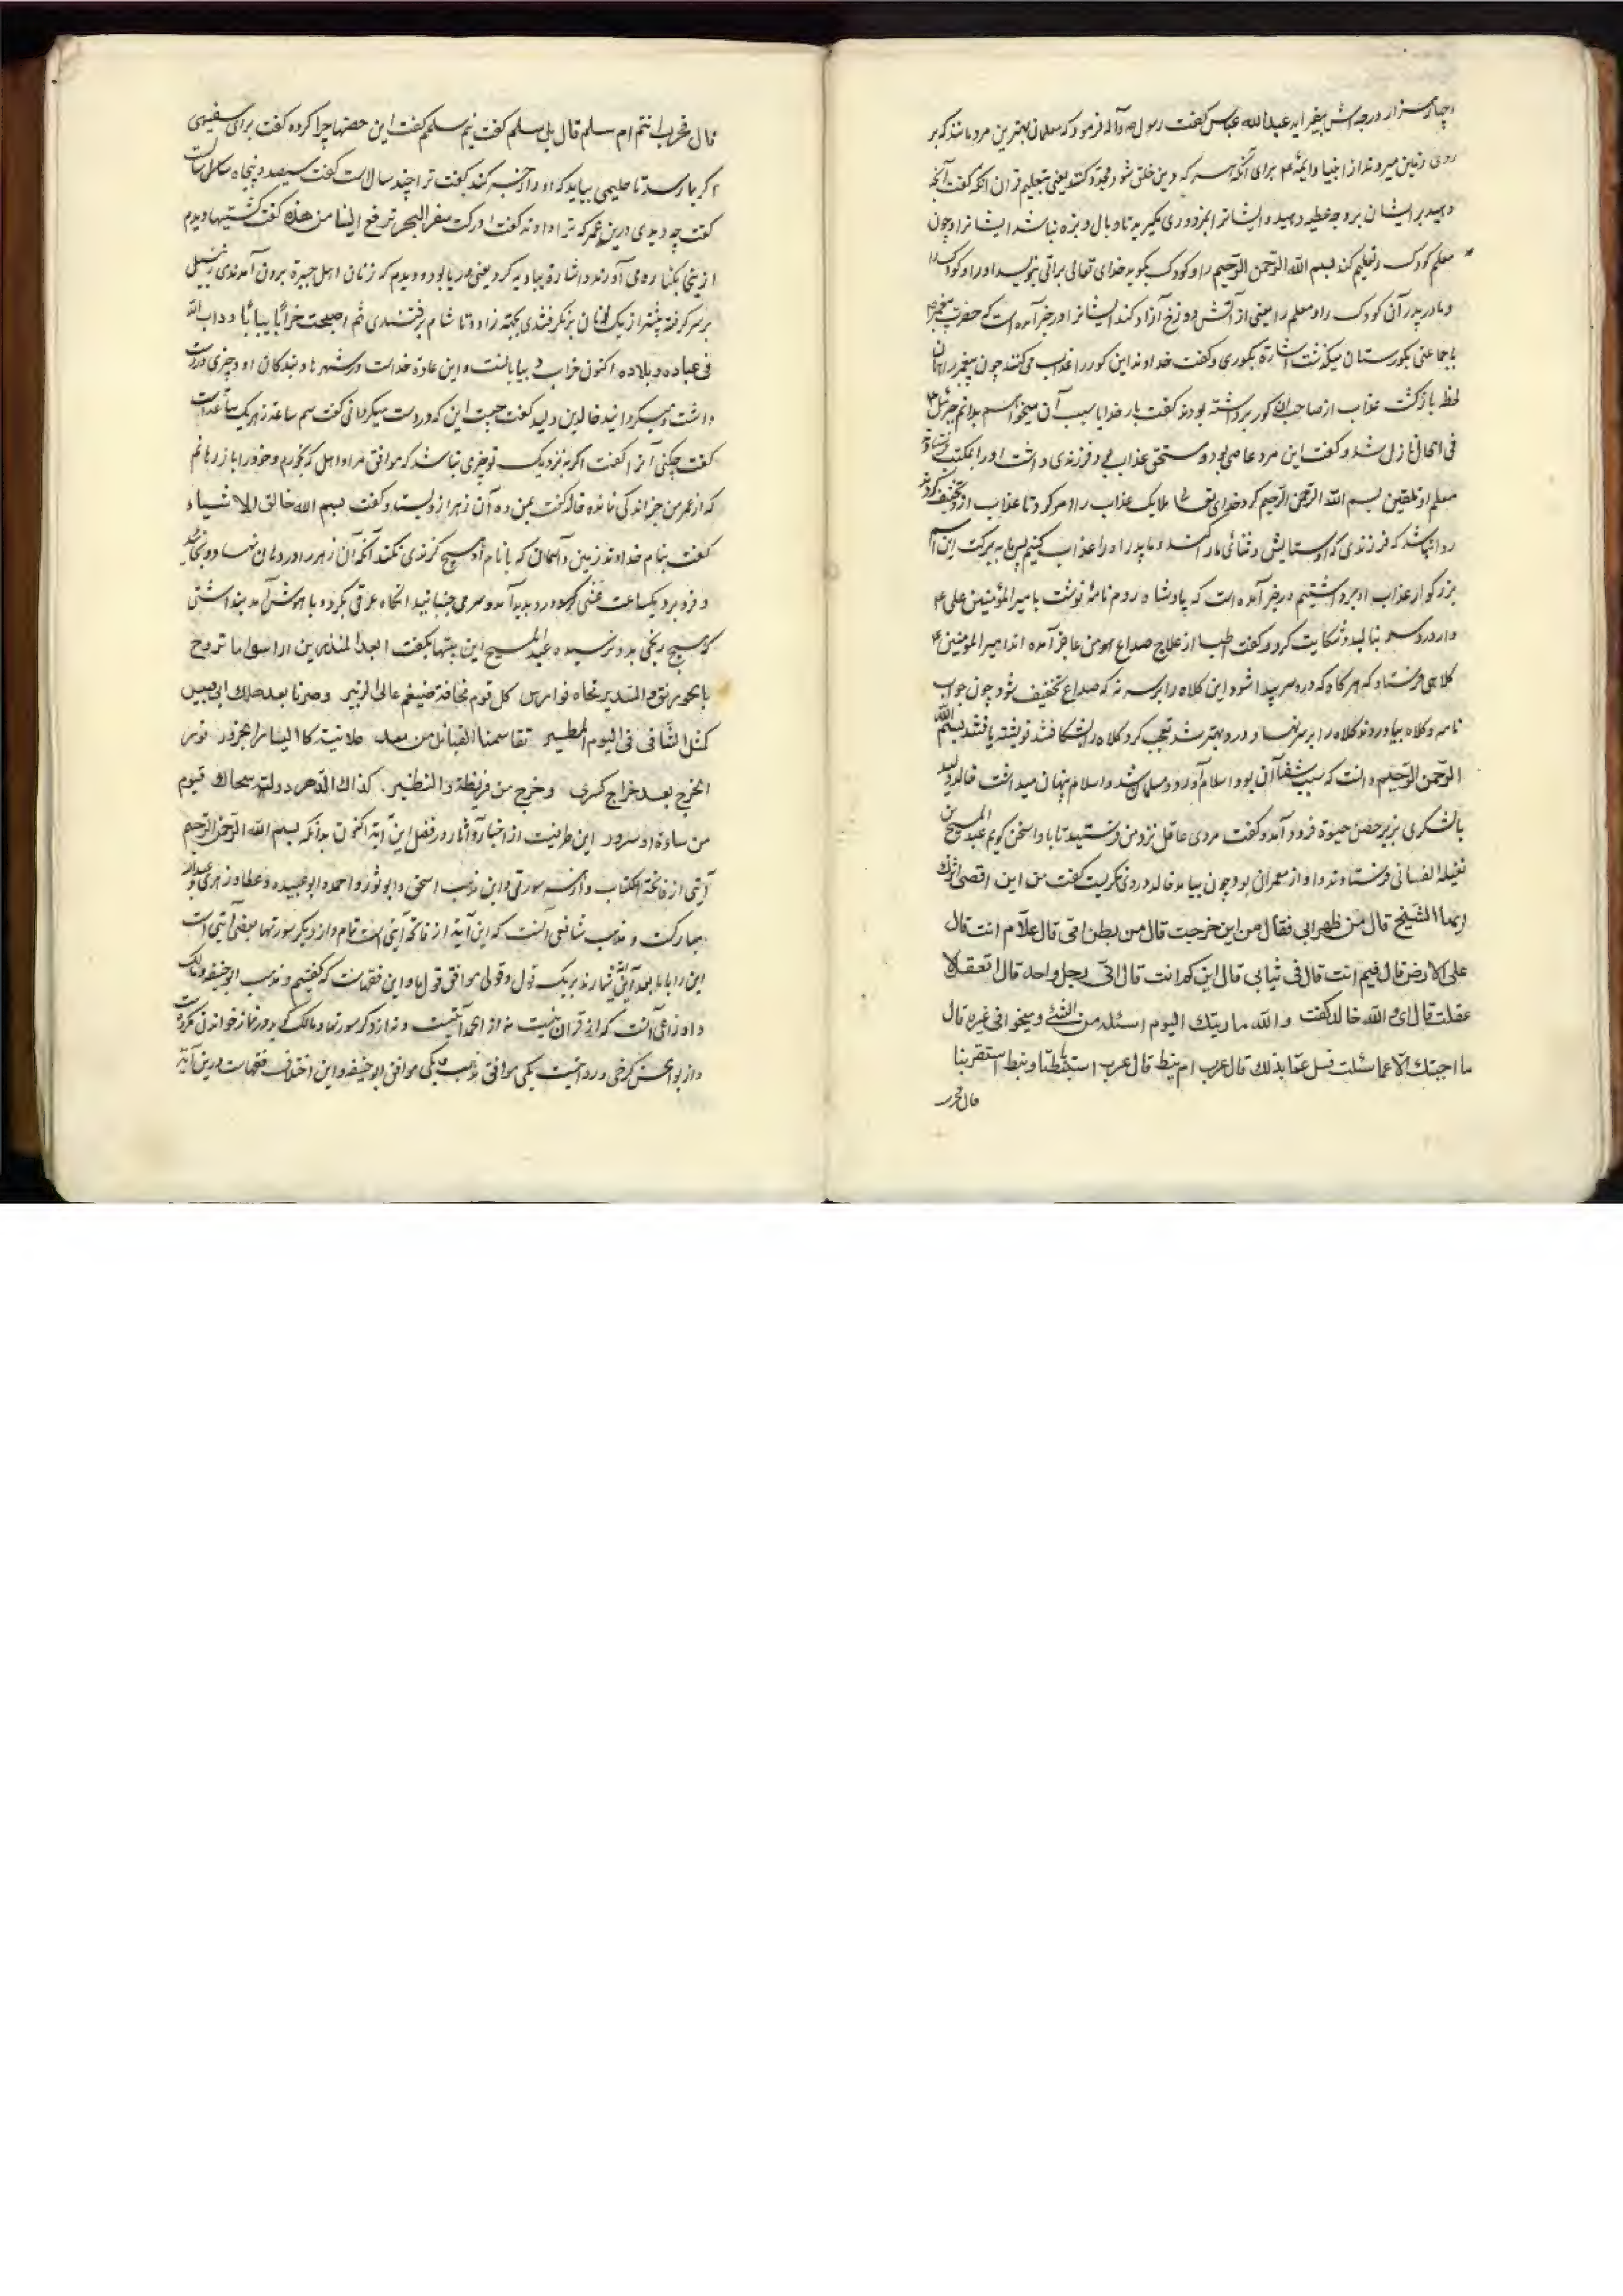 چهار هزار درجه‌اش بیفزاید عبدالله عباس گفت رسول ص و آله فرمود که معلمان بهترین مردمانند که بر
روی زمین میروند از انبیا و ایمهٔ ع برای آنکه هر که دین خلق شود مجدد کنند یعنی بتعلیم قران آنکه گفت آنچه
دهید بر ایشان بر وجه عطیه دهید و ایشانرا بمزدوری مگیرید تا وبال و بزه نباشد ایشانرا و چون
معلم کودک را تعلیم کند بسم الله الرحمن الرحیم را و کودک بگوید خدای تعالی براتی بنویسد او را و کودک را
و مادر پدر آن کودک را و معلم را یعنی از آتش دوزخ آزاد کند ایشانرا و در خبر آمده است که حضرت پیغمبر
با جماعتی بگورستان میگذشت اشاره بگوری و گفت خداوند این گور را عذاب می‌کنند چون پیغمبر
لحظه بازگشت عذاب از صاحب آن گور برداشته بودند گفت بار خدایا سبب آن میخواهم بدانم جبرئیل ع
فی الحال نازل شد و گفت این مرد عاصی بود و مستحق عذاب و فرزندی داشت او را بمکتب
معلم او تلقین بسم الله الرحمن الرحیم کرد خدای تعالی ملایک عذاب را امر کرد تا عذاب از و تخفیف کردند
روا نباشد که فرزندی که او ستایش و ثنائی ما کند و ما پدر او را عذاب کنیم پس ما به برکت این اسم
بزرگوار عذاب او برداشتیم در خبر آمده است که پادشاه روم نامهٔ نوشت بامیرالمؤمنین علی ع
و از درد سر بنالید و شکایت کرد و گفت طبا از علاج صداع من عاجز آمده‌اند امیرالمؤمنین ع
کلاهی فرستاد که هر گاه که درد سر پیدا شود این کلاه را بر سر نه که صداع تخفیف شود چون جواب
نامه و کلاه بیاوردند کلاه را بر سر نهاد و درد بهتر شد تعجب کرد کلاه را بشکافتند نوشته یافتند بسم الله
الرحمن الرحیم دانست که سبب شفا آن بود و اسلام آورد و مسلمان شد و اسلام پنهان میداشت خالد ولید
بالشکری بزیر حصن حیره فرود آمد و گفت مردی عاقل نزد من فرستید تا با او سخن گویم عبد المسیح بن
نفیله الغسانی فرستادند و او از معمران بود چون بیامد خالد در وی نگریست گفت من این اقصی اثرک
ایها الشیخ قال من ظهر ابی فقال من این خرجت قال من بطن امّی قال علام انت قال
علی الارض قال فیم انت قال فی ثیابی قال ابن کم انت قال ابن رجل واحد قال اتعقل لا
عقلت قال ای و الله خالد گفت والله ما رایتک الیوم اسئله من الشیٔ و یجیبوانی غیره قال
ما اجبتک الّا عما سئلت فسل عمّا بدا لک قال عرب ام نبط قال عرب استنبطنا و نبط استعربنا
قال فحرب
قال فحرب انتم ام سلم قال بل سلم گفت نیم سلیم گفت این حصنها چرا کرده گفت برای سفیهی
اگر بما رسد تا حلیمی بیاید که او را زجر کند گفت ترا چند سال است گفت سیصد و پنجاه سال است
گفت چه دیدی درین عمر که ترا داده گفت ادرکت سفن البحر ترفع الینا من هذه گفت کشتیها دیدم
از اینجا بکناره می آوردند و اشاره ببادیه کرد یعنی دریا بود و دیدم که زنان اهل حیره برون آمدندی زنبیل
بر سر گرفته بیشتر از یک نان بر نگرفتندی بجهت زاد و تا شام برفتندی ثم اصبحت خراباً یباباً و داب الله
فی عباده و بلاده اکنون خراب و بیابانست و این عادة خداست در شهرها و بندگان او و چیزی در دست
داشت و میگردانید خالد بن ولید گفت چیست این که در دست میگردانی گفت سم ساعة زهر یک ساعت است
گفت چکنی آنرا گفت اگر به نزدیک تو چیزی نباشد که موافق مراد اهل که بخورم و خود را باز رهانم
که از عمر من جز اندکی نمانده خالد گفت بمن ده آن زهر از و بستد و گفت بسم الله خالق الاشیاء
گفت بنام خداوند زمین و آسمان که با نام او هیچ گزندی نکند آنگه آن زهر را در دهان نهاد و بخائید
و فرو برد یکساعت غشی کرد و درد پدید آمد و سر می جنبانید آنگاه عرقی بکرد و با هوش آمد پنداشتی
که هیچ رنجی بدو نرسیده عبد المسیح این بیتها بگفت ابعد المنذرین اری سواما تروح
بالخورنق و السدیر تحاماه فوارس کل قوم مخافة ضیغم عالی الزئیر وصرنا بعد هلک ابی قبیس
کمثل الشاء فی الیوم المطیر تقاسمنا القبائل من معد علانیة کایسار الجزور نودی
الخرج بعد خراج کسری وخرج من قریظة والنظیر. کذاک الدهر دولته سجال فیوم
من مساءة او سرور این طرفیست از اخبار و آثار در فضل این آیه اکنون بدانکه بسم الله الرحمن الرحیم
آیتی از فاتحة الکتاب و از هر سورتی و این مذهب اسحق و ابو ثور و احمد و ابو عبیده و عطا و زهری و عبدالله
مبارکست و مذهب شافعی آنست که این آیة از فاتحه آیتی است تمام و از دیگر سورتها بعضی آیتی است
این را با ما بعد آیتی شمارند بر یک قول و قولی موافق قول ما و این فقهاست که گفتیم و مذهب ابو حنیفه و مالک
و اوزاعی آنست که از قرآن نیست نه از الحمد آیتیست و نه از دیگر سورتها و مالک گوید در نماز خواندن مکروه است
و از ابو الحسن کرخی دو روایتست یکی موافق مذهب و یکی موافق ابو حنیفه و این اختلاف فقهاست درین آیة